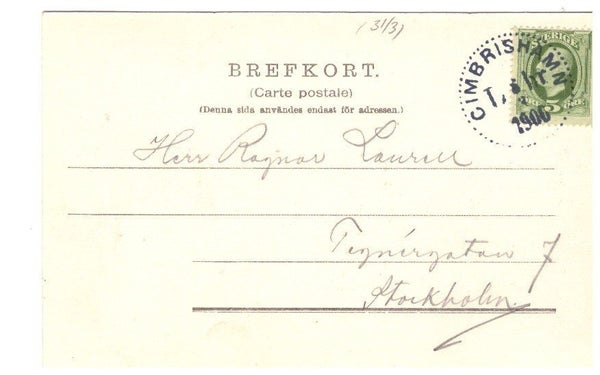 (31/3)
SVERIGE
CIMBRISHAMN
1900
5 ÖRE
BREFKORT.
(Carte postale)
(Denna sida användes endast för adressen.)
Herr Ragnar Laurell
Tegnérgatan 7
Stockholm.